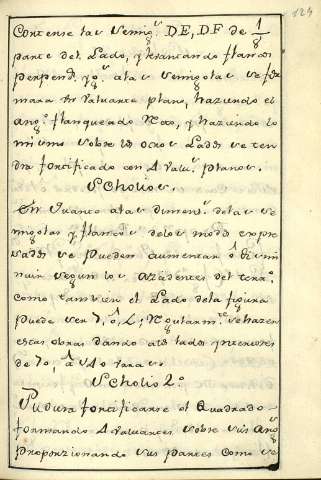 124
Cortense las Semig.s DE, DF de 1/8
parte del Lado, y levantando flancos
perpend.s y g.s a las Semigolas se for
mara un valuarte plano, haziendo el
ang.o flanqueado y haziendo lo
mismo sobre los otros Lados se ten
dra fortificado con 4 valu.s planos.
Scholio.
En quanto a las dimens.s de las se
migolas y flancos de los modos expre
sados se pueden aumentar ô dismi
nuir segun los acidentes del terr.o
como tambien el Lado de la figura
puede ser se hazen
estas obras dando a los lados menores
de 70, â 40 tesas.
Scholio 2.o
Pudiera fortificarse el Quadrado
formando 4 valuartes sobre sus ang.s
proporzionando sus partes como se